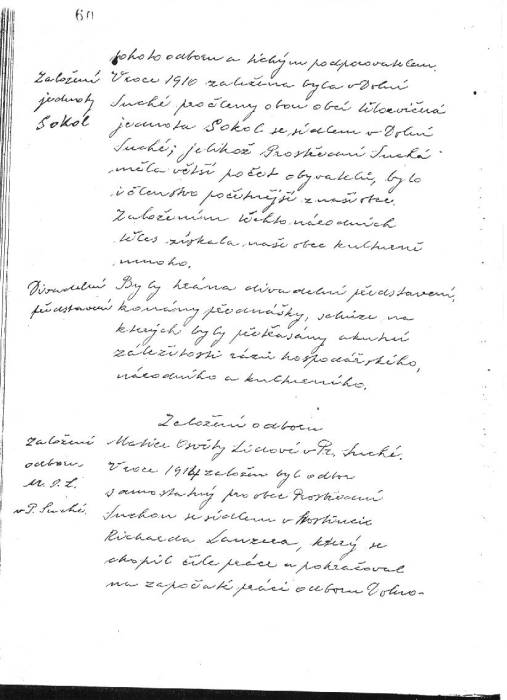 60
tohoto odboru a tichým podporovatelem.
Založení
jednoty
Sokol
V roce 1910 založena byla v Dolní
Suché pro členy obou obcí tělocvičná
jednota Sokol se sídlem v Dolní
Suché; jelikož Prostřední Suchá
měla větší počet obyvatelů, bylo
i členstvo početnější z naší obce.
Založením těchto národních
těles získala naše obec kulturně
mnoho.
Divadelní
představení
Byly hrána divadelní představení,
konány přednášky, schůze na
kterých byly přetřásány akutní
záležitosti rázu hospodářského,
národního a kulturního.
Založení odboru
Matice Osvěty Lidové v Pr. Suché.
Založení
odboru
M. O. L.
v P. Suché.
V roce 1914 založen byl odbor
samostatný pro obec Prostřední
Suchou se sídlem v Hostinci
Richarda, který se
chopil čile práce a pokračoval
na započaté práci odboru Dolno-